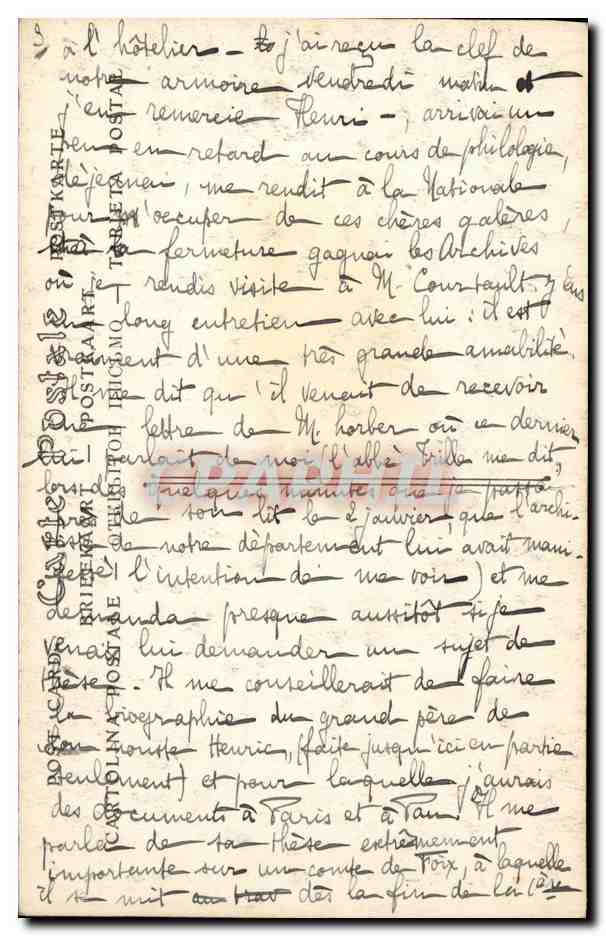 3)
à l'hôtelier – j'ai reçu la clef de
notre armoire vendredi matin et
j'en remercie Henri –, arrivai un
peu en retard au cours de philologie,
déjeunai, me rendit à la Nationale
pour m'occuper de ces chères galères,
à la fermeture gagnai les Archives
où je rendis visite à M. Courtault. J'eus
un long entretien avec lui : il est
vraiment d'une très grande amabilité.
Il me dit qu'il venait de recevoir
une lettre de M. Lorber où ce dernier
lui parlait de moi (l'abbé Trille me dit,
lors des quelques minutes que je passai
près de son lit le 2 janvier, que l'archi-
viste de notre département lui avait mani-
festé l'intention de me voir) et me
demanda presque aussitôt si je
venais lui demander un sujet de
thèse. Il me conseillerait de faire
la biographie du grand père de
notre Henric, (faite jusqu'ici en partie
seulement) et pour laquelle j'aurais
des documents à Paris et à Pau. Il me
parla de sa thèse extrêmement
importante sur un comte de Foix, à laquelle
il se mit au trav dès la fin de la 1ère
Carte Postale
POST CARD POSTKARTE
BRIEFKAART POSTKAART
CARTOLINA POSTALE TARJETA POSTAL
CPAPHIL